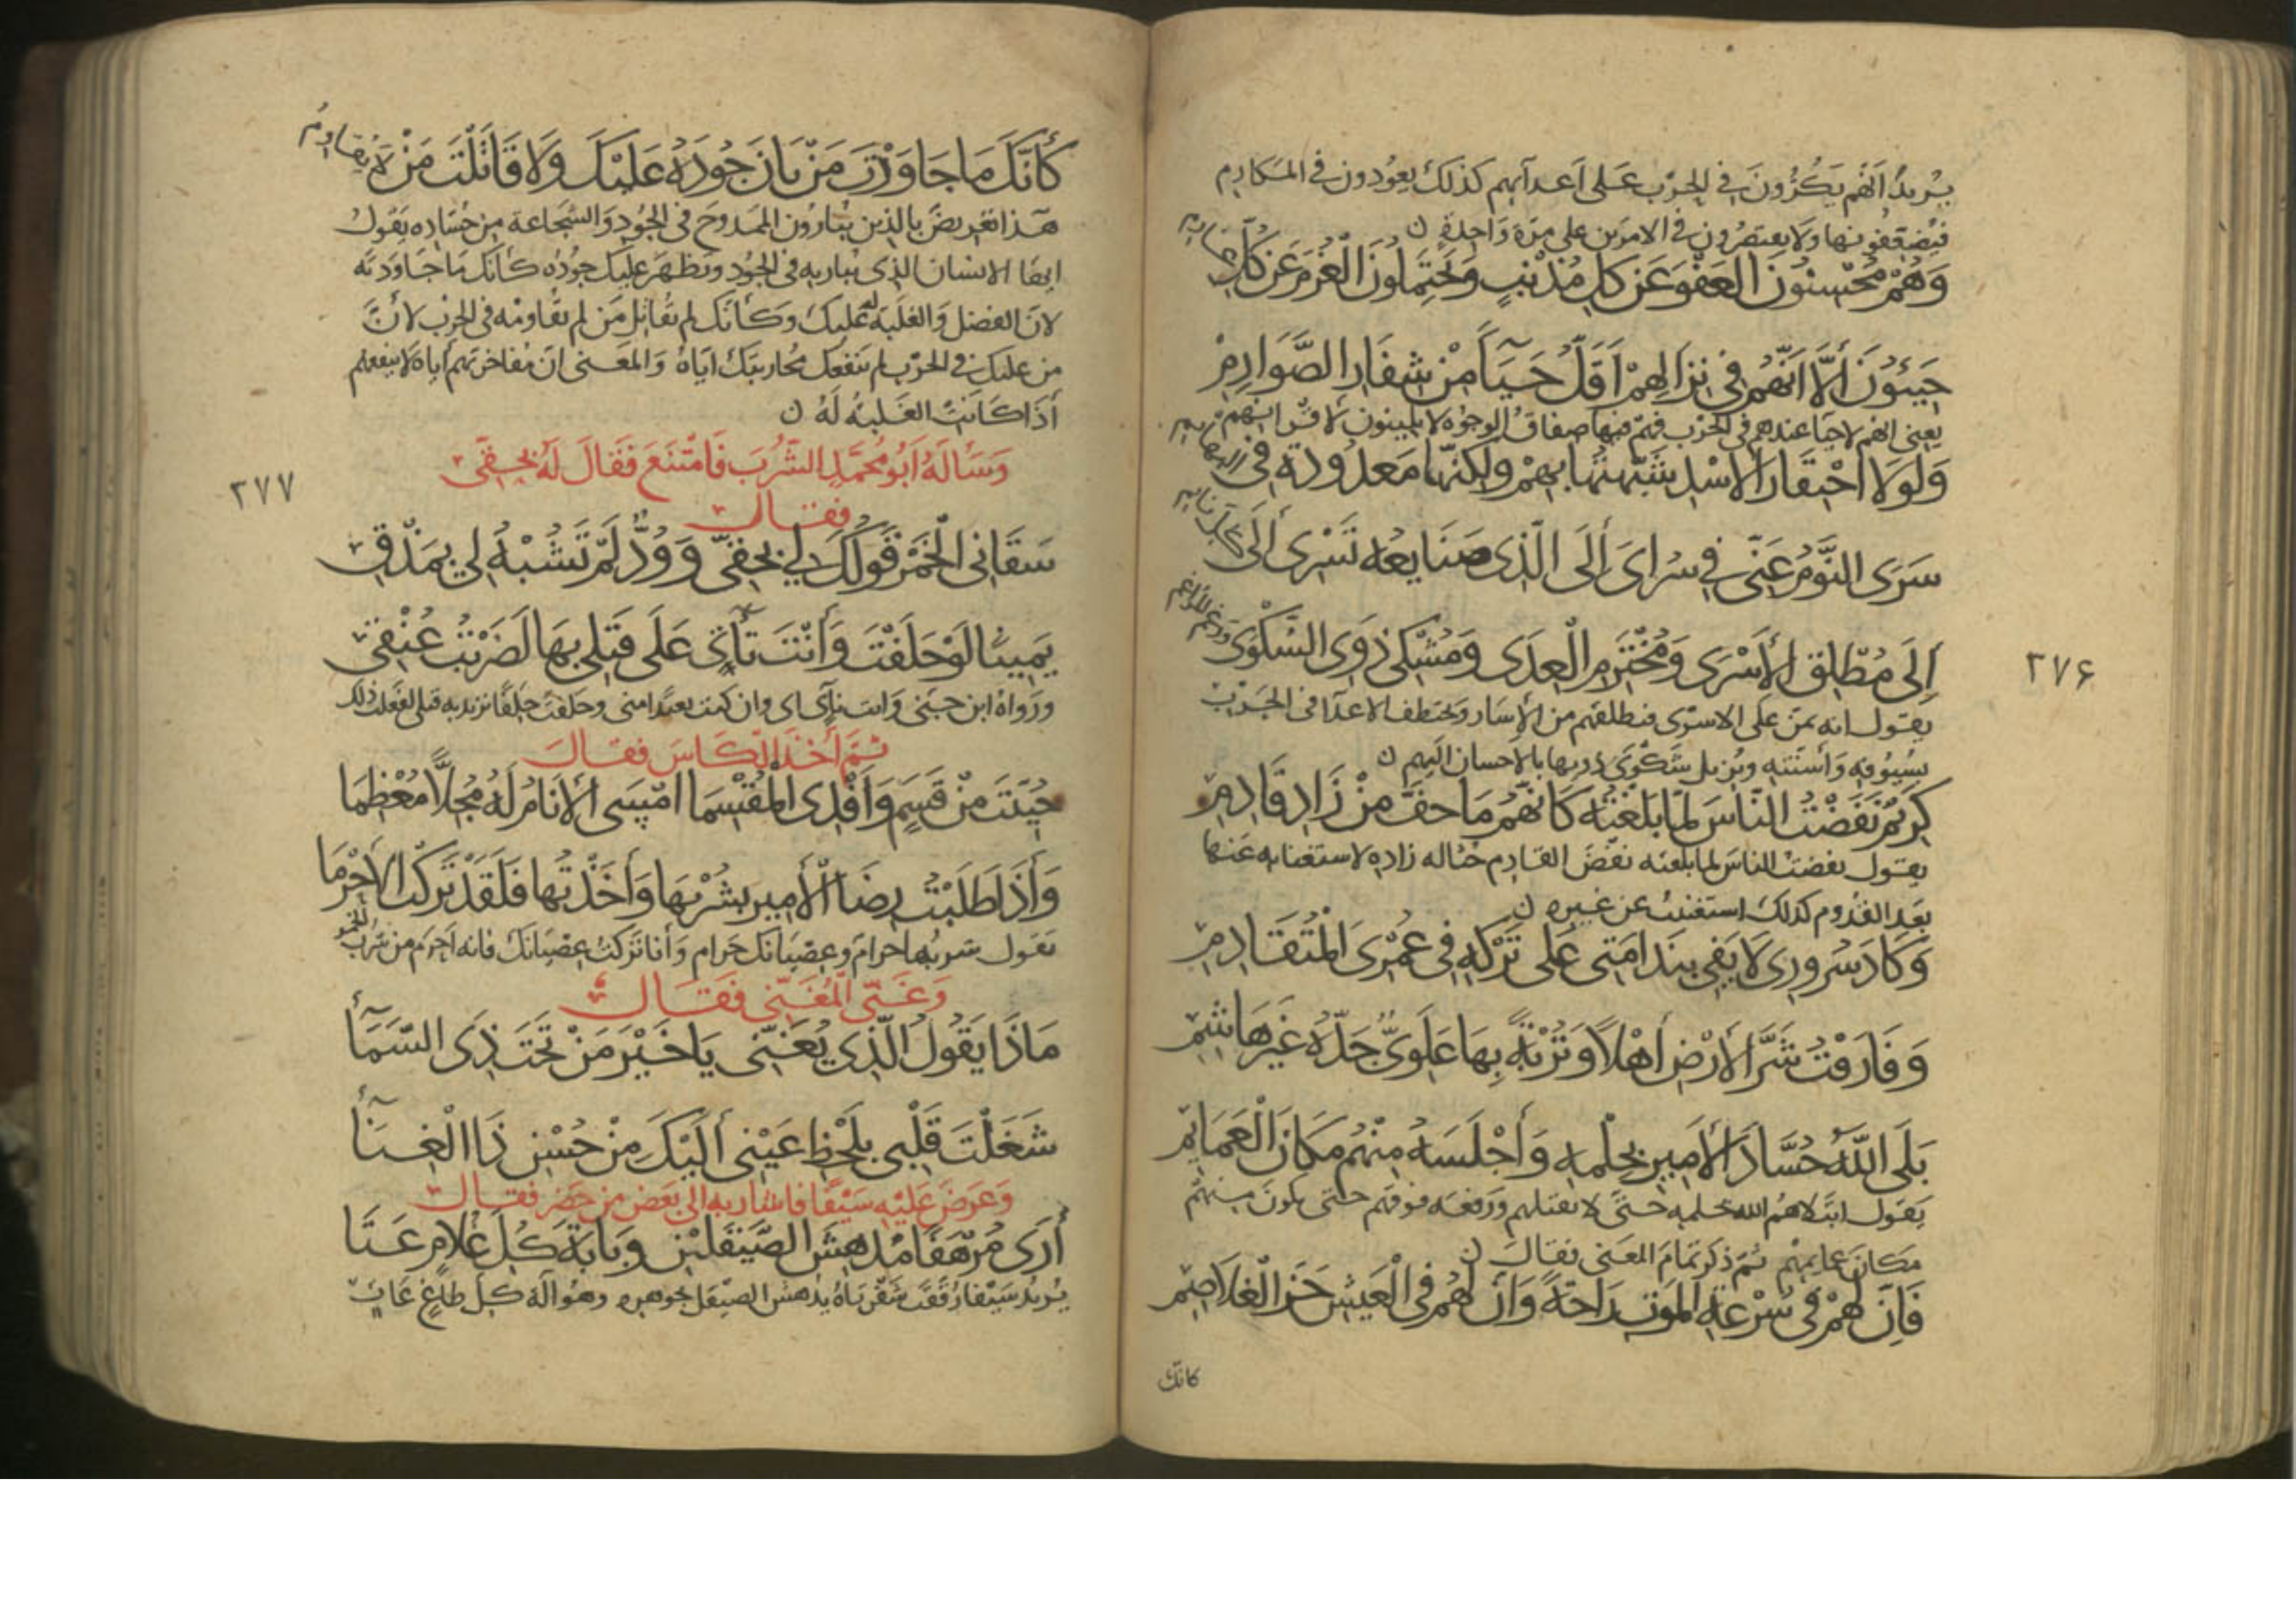 يريد انهم يكرّون في الحرب على اعدآيهم كذلك يعودون في المكارم
فيضعفونها ولا يقتصرون في الامرين على مرة واحدة ن
وَهُمْ مُحْسِنُونَ العَفْوَ عَن كلِ مُذْنبٍ وَيَحْتَمِلونَ الغُرْمَ عَن كُلِّ غارم
حَيِيُّونَ أَلَّا انَّهُم فِي نِزَالِهِمْ اَقَلُّ حَيَآءً مِنْ شِفَارِ الصَّوَارِمِ
يعني انهم لا حيا عندهم في الحرب فهم فيها صفاق الوجوه لا يلينون لاقرانهم
وَلَولَا احْتِقَارُ الاسْدِ شَبَّهْتُهَا بِهِمْ ولكِنَّهَا مَعْدُودَة فِي البهايم
سَرَى النَّوْمُ عَنّي فِي سُرَايَ أِلَى الَّذِي صَنَايعُه تَسْرِى أِلَى كل نايم
إِلَى مُطْلِقِ الأَسْرَى وَمُخْتَرِمِ العِدَى وَمُشْكِي ذَوِي الشَكْوَى ورغم المراغم
يقول انه يمن على الاسرى فيطلقهم من الإسار ويختطف الاعدآ في الحرب
بسيوفه وأسنته ويزيل شكوى ذويها بالاحسان اليهم ن
كَرِيْمٌ نَفَضْتُ النّاسَ لمّا بَلَغْتُهُ كَانَّهُمُ مَا جفَّ مِنْ زَادِ قَادِمِ
يقول نفضت الناس لما بلغته نفض القادم حثاله زاده لاستغنايه عنها
بعد القدوم كذلك استغنيت عن غيره ن
وَكَادَ سُرورِى لَا يَفِي بِنَدامَتِي عَلَى تَرْكِهِ فِي عُمْرِيَ المُتَقَادِمِ
وَفَارَقْتُ شَرَّ الأَرْضِ أَهْلاً وَتُرْبَةً بِهَا عَلَوِيٌّ جَدُّهُ غَيْرُ هَاشِمِ
بَلَى اللّهُ حُسَّادَ الأَمِيرِ بِحِلْمِهِ وَأَجْلَسَهُ مِنْهُم مَكَانَ العَمَايِمِ
يقول ابتلاهم الله بحلمه حتى لا يقتلهم ورفعه فوقهم حتى يكون منهم
مكان عمايمهم ثم ذكر تمام المعنى فقال ن
فَإِنَّ لَهُمْ فِي سُرْعَةِ المَوتِ رَاحَةً وَأنَّ لَهُم فِي العَيْشِ حَزَّ الغَلَاصِمِ
كانك
٢٧۶
كَأَنَّكَ مَا جَاوَدْتَ مَنْ بَانَ جُودُهُ عَلَيْكَ وَلَا قَاتَلْتَ مَنْ لَا يقاوم
هذا تعريض بالذين يبارون الممدوح في الجود والشجاعة من حساده يقول
ايها الانسان الذي يباريه في الجود ويظهر عليك جوده كأنك ما جاودته
لان الفضل والغلبة له عليك وكأنك لم تقاتل من لم تقاومه في الحرب لأن
من عليك في الحرب لم تنفعك محاربتك اياه والمعنى ان مفاخرتهم اياه لا ينفعهم
أذا كانت الغلبة له ن
وَسَأَلَهُ اَبُو مُحَمَّدٍ الشُّرْبَ فَامْتَنَعَ فَقَالَ لَهُ بِحَقّي
فقال
٢٧٧
سَقَانِي الخَمْرَ قَولُكَ لِي بِحَقّي وَوُدٌّ لَمْ تَشُبْهُ لِي بِمَذْقِ
يَمِيناً لَوْ حَلَفْتَ وَأَنْتَ تَأْتِي عَلَى قَتْلِي بِهَا لَضَرَبْتُ عُنْقِي
ورواه ابن جني وانت ناي اي وان كنت بعيدا مني وحلفت حلفا تريد به قتلي لفعلت ذلك
ثُمَّ أَخَذَ الكَاسَ فقال
حُيِّيتَ مِنْ قَسَمٍ وَأَفْدِى المُقْسِمَا امْسَى الأَنَامُ لَهُ مُجِلاًّ مُعْظِمَا
وَأَذَا طَلَبْتُ رِضَا الأَمِيرِ بِشُرْبِهَا وَأَخَذْتُهَا فَلَقَدْ تَرَكْتُ الأَحْرَمَا
يقول شربها حرام وعصيانك حرام وأنا تركت عصيانك فانه احرم من شرب الخمر
وَغَنَّى المُغَنِّي فَقَالَ
مَاذَا يَقُولُ الّذِي يُغَنّي يَا خَيْرَ مَنْ تَحْتَ ذِى السَّمَآءِ
شَغَلْتَ قَلْبِي بِلَحْظِ عَيْنِي أِلَيْكَ مِنْ حُسْنِ ذَا الْغِنَآءِ
وَعَرَضَ عَلَيْهِ سَيْفًا فاشار به الى بعض من حضر فقال
أَرَى مُرْهَفًا مُدْهِشَ الصَّيْقَلَيْنِ وَبَابَةَ كُلِّ غُلامٍ عَتَا
يريد سيفا رققت شفرتاه يدهش الصيقل جوهره وهو آلة كل طاغ عات